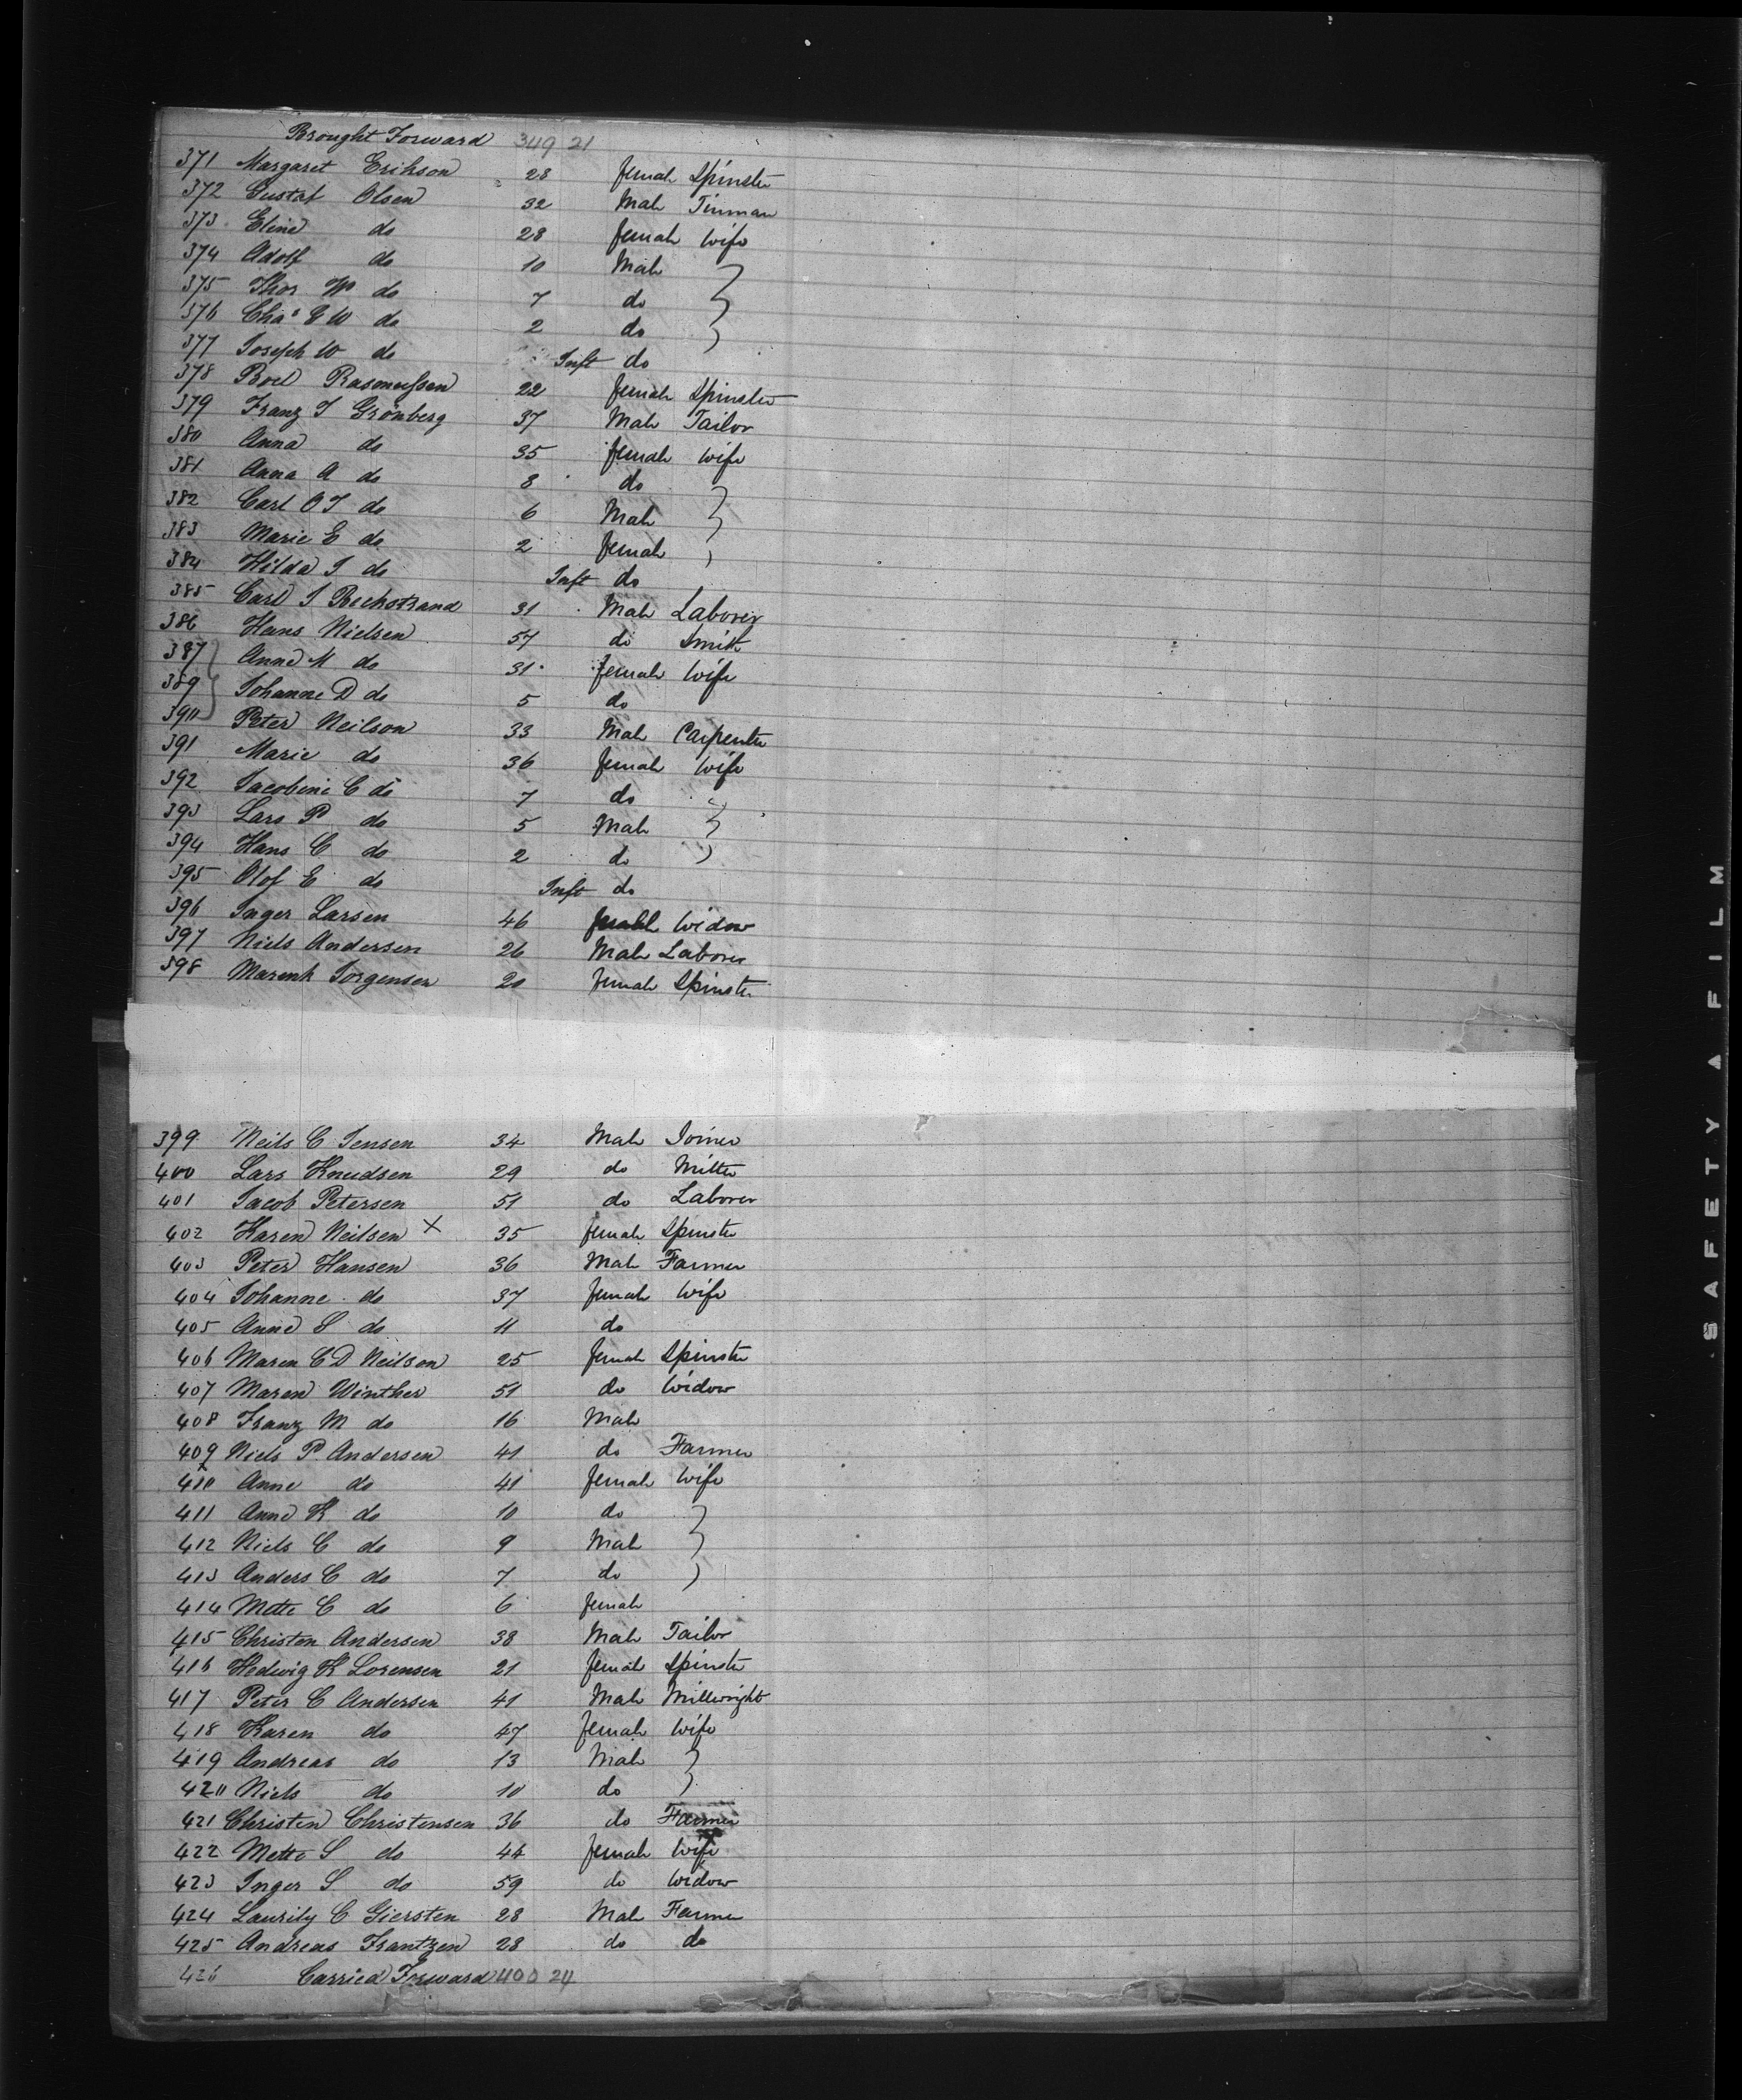 Brought Forward 349 21
371 Margaret Erikson 28 female Spinster
372 Gustaf Olsen 32 Male Tinman
373 Eline do 28 female wife
374 Adolf do 10 Male
375 Thor W do 7 do
376 Chas E W do 2 do
377 Joseph W do Inft do
378 Boel Rasmussen 22 female Spinster
379 Franz J Grönberg 37 Male Tailor
380 Anna do 35 female wife
381 Anna A do 8 do
382 Carl O J do 6 Male
383 Marie E do 2 female
384 Hilda J do Inft do
385 Carl J 31 Male Laborer
386 Hans Nielsen 57 do Smith
387 Anne M do 31 female wife
389 Johanne D do 5 do
390 Peter Neilson 33 Male Carpenter
391 Marie do 36 female wife
392 Jacobine C do 7 do
393 Lars P do 5 Male
394 Hans C do 2 do
395 Olof E do Inft do
396 Inger Larsen 46 female Widow
397 Niels Andersen 26 Male Laborer
398 Jorgensen 20 female Spinster
399 Neils C Jensen 34 Male Joiner
400 Lars Knudsen 29 do
401 Jacob Petersen 51 do Laborer
402 Karen Neilsen X 35 female Spinster
403 Peter Hansen 36 Male Farmer
404 Johanne do 37 female wife
405 Anne S do 11 do
406 Maren C D Neilson 25 female Spinster
407 Maren Winther 51 do Widow
408 Franz M do 16 Male
409 Niels P. Andersen 41 do Farmer
410 Anne do 41 female wife
411 Anne K do 10 do
412 Niels C do 9 Male
413 Anders C do 7 do
414 Mette C do 6 female
415 Christen Andersen 38 Male Tailor
416 Hedwig K Lorensen 21 female Spinster
417 Peter C Andersen 41 Male Millwright
418 Karen do 47 female wife
419 Andreas do 13 Male
420 Niels do 10 do
421 Christen Christensen 36 do Farmer
422 Mette S do 44 female wife
423 Inger S do 59 do Widow
424 C Giersten 28 Male Farmer
425 Andreas Frantzen 28 do do
426 Carried Forward 400 24
SAFETY A FILM